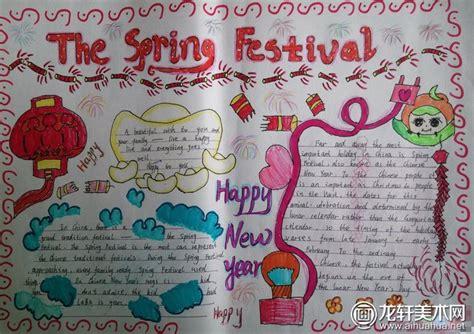 The Spring Festival
A beautiful wish to you and
your family —— live a happy
life and everything goes
well.
Happy to you.
Happy
Far and away the most
important holiday in China is Spring
Festival also known as the Chinese
New Year. To the Chinese people
is as important as Christmas to people
in the The dates for this
annual celebration and determined by the
lunar calendar rather than the
so the timing of the holiday
from late January to early
February. To the ordinary
Chinese the festival actually
begins on the
the lunar New Year's Day
Happy
New
Year
In China, there is a
grand tradition festival
Festival. the Spring Festival is the most can represent
the Chinese traditional festivals. During the Spring Festival
approaching, every family ready Spring Festival
thing. In Chinese New
the kid
Happy
龙轩美术网
www.aihuahua.net